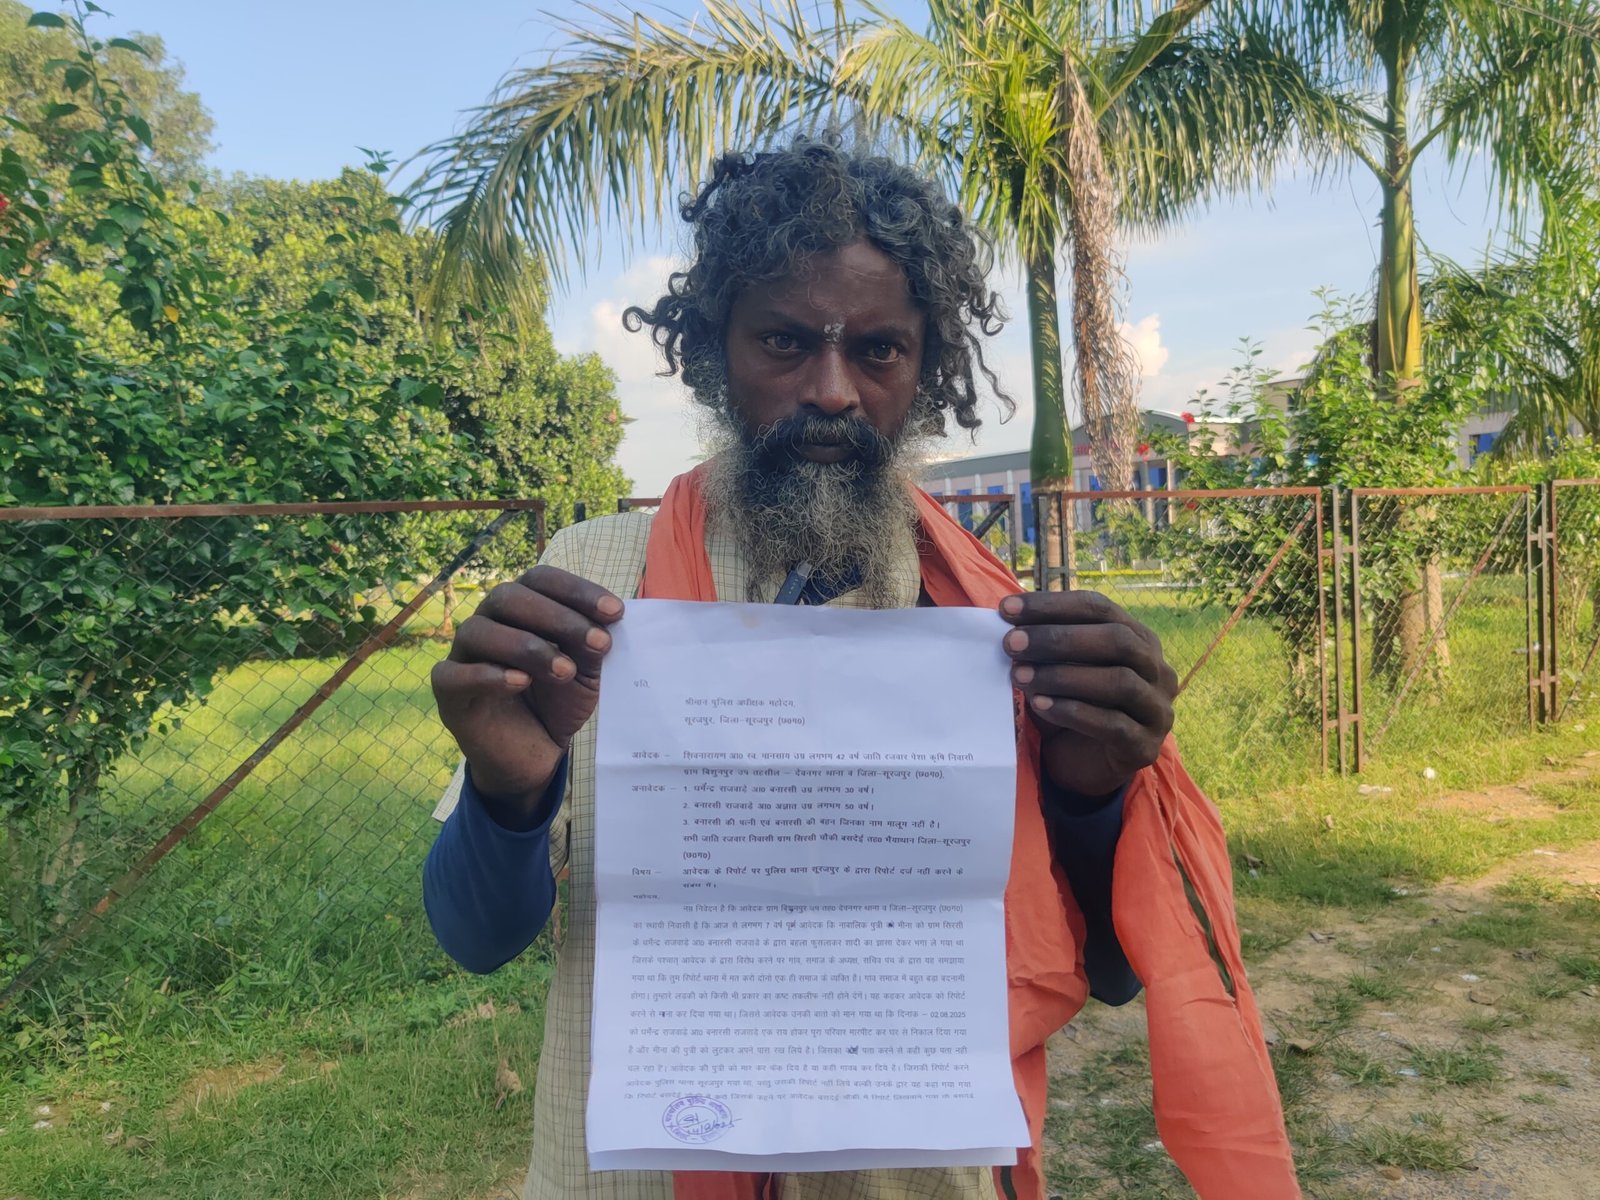 प्रति,
श्रीमान पुलिस अधीक्षक महोदय,
सूरजपुर, जिला–सूरजपुर (छ0ग0)
आवेदक – शिवनारायण आ0 स्व. मानसाय उम्र लगभग 42 वर्ष जाति रजवार पेशा कृषि निवासी
ग्राम बिशुनपुर उप तहसील – देवनगर थाना व जिला–सूरजपुर (छ0ग0).
अनावेदक – 1. धर्मेन्द्र राजवाड़े आ0 बनारसी उम्र लगभग 30 वर्ष।
2. बनारसी राजवाड़े आ0 अज्ञात उम्र लगभग 50 वर्ष।
3. बनारसी की पत्नी एवं बनारसी की बहन जिनका नाम मालूम नहीं है।
सभी जाति रजवार निवासी ग्राम सिरसी चौकी बसदेई तह0 भैयाथान जिला–सूरजपुर
(छ0ग0)
विषय – आवेदक के रिपोर्ट पर पुलिस थाना सूरजपुर के द्वारा रिपोर्ट दर्ज नहीं करने के
संबंध में।
महोदय,
नम्र निवेदन है कि आवेदक ग्राम बिशुनपुर उप तह0 देवनगर थाना व जिला–सूरजपुर (छ0ग0)
का स्थायी निवासी है कि आज से लगभग 7 वर्ष पूर्व आवेदक कि नाबालिक पुत्री मीना को ग्राम सिरसी
के धर्मेन्द्र राजवाड़े आ0 बनारसी राजवाड़े के द्वारा बहला फुसलाकर शादी का झासा देकर भगा ले गया था
जिसके पश्चात् आवेदक के द्वारा विरोध करने पर गांव, समाज के अध्यक्ष, सचिव पंच के द्वारा यह समझाया
गया था कि तुम रिपोर्ट थाना में मत करो दोनो एक ही समाज के व्यक्ति है। गांव समाज में बहुत बड़ा बदनामी
होगा। तुम्हारे लड़की को किसी भी प्रकार का कष्ट तकलीफ नही होने देंगें। यह कहकर आवेदक को रिपोर्ट
करने से मना कर दिया गया था। जिससे आवेदक उनकी बातो को मान गया था कि दिनांक – 02.08.2025
को धर्मेन्द्र राजवाड़े आ0 बनारसी राजवाड़े एक राय होकर पुरा परिवार मारपीट कर घर से निकाल दिया गया
है और मीना की पुत्री को लुटकर अपने पास रख लिये है। जिसका पता करने से कही कुछ पता नही
चल रहा है। आवेदक की पुत्री को मार कर फेंक दिये है या कही गायब कर दिये है। जिसकी रिपोर्ट करने
आवेदक पुलिस थाना सूरजपुर गया था, परंतु उसकी रिपोर्ट नहीं लिये बल्की उनके द्वारा यह कहा गया गया
कि रिपोर्ट बसदेई चौकी में करो जिसके कहने पर आवेदक बसदेई चौकी में रिपोर्ट लिखवाने गया तो बसदेई